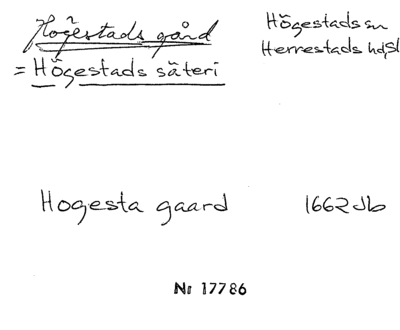 Högestads gård
= Högestads säteri
Högestads sn
Herrestads hd, Sk
Hogesta gaard 1662 Jb
Nr 17786